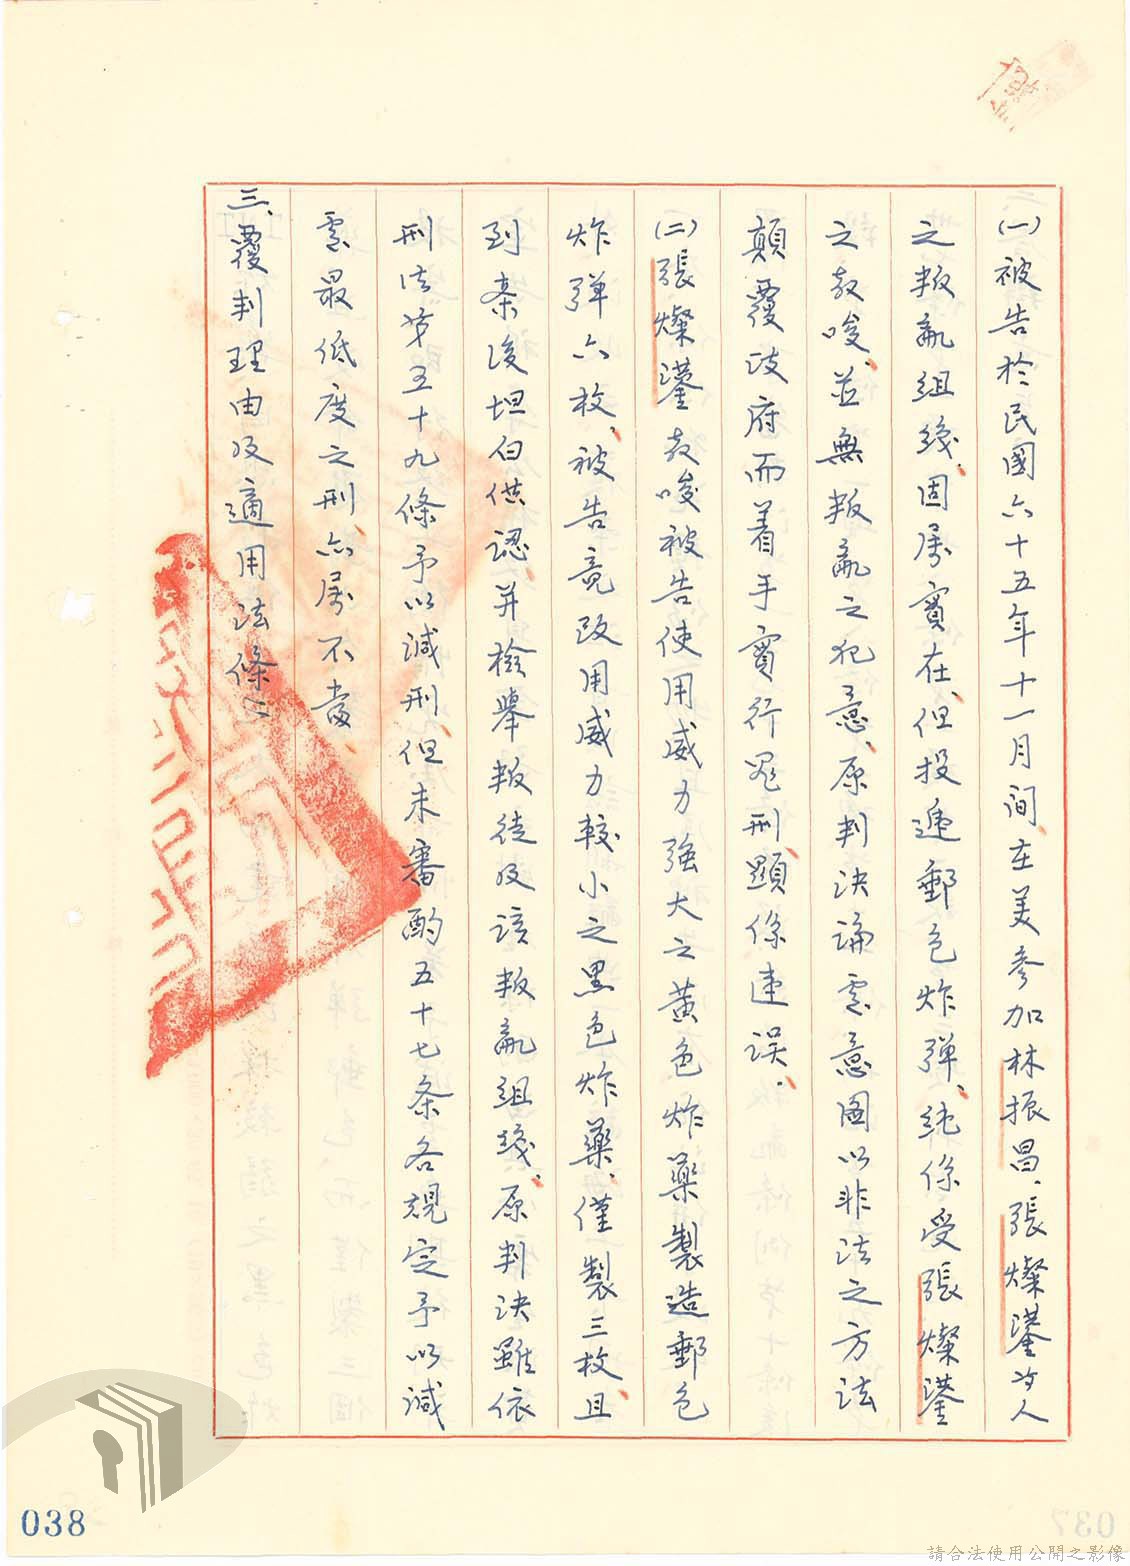 (一)被告於民國六十五年十一月間、在美參加林振昌、張燦鍙等人
之叛亂組織、固屬實在、但投遞郵包炸彈、純係受張燦鍙
之教唆、並無叛亂之犯意、原判決諭意圖以非法之方法
顛覆政府而着手實行罪刑、顯係違誤、
(二)張燦鍙教唆被告使用威力強大之黃色炸藥製造郵包
炸彈六枚、被告竟改用威力較小之黑色炸藥、僅製三枚、且
到案後坦白供認、并檢舉叛徒及該叛亂組織、原判決雖依
刑法第五十九條予以減刑、但未審酌五十七条各規定予以減
處最低度之刑、亦屬不當、
三、覆判理由及適用法條：
038
037
請合法使用公開之影像